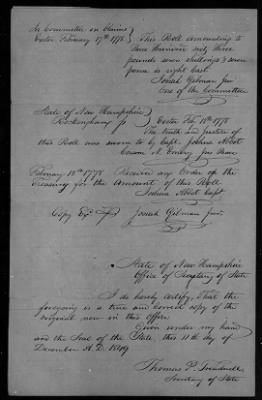 In Committee on Claims
Exeter February 17th 1778
This Roll amounting to
three hundred sixty three
pounds seven shillings & seven
pence is right Cast.
Josiah Gilman Jun
One of the Committee
State of New Hampshire
Rockingham ss
Exeter Feby 18th 1778
The truth and justice of
this Roll was sworn to by Capt. Joshua Abbot
Coram N. Emery Jus Peace
February 18th 1778 Receivd an Order on the
Treasury for the Amount of this Roll
Joshua Abbot Capt.
Copy Exd Josiah Gilman Junr
State of New Hampshire
Office of Secretary of State
I do hereby certify, that the
foregoing is a true and correct copy of the
original now in this Office.
Given under my hand
and the Seal of the State, this 11th day of
December A. D. 1849
Thomas P. Treadwell
Secretary of State